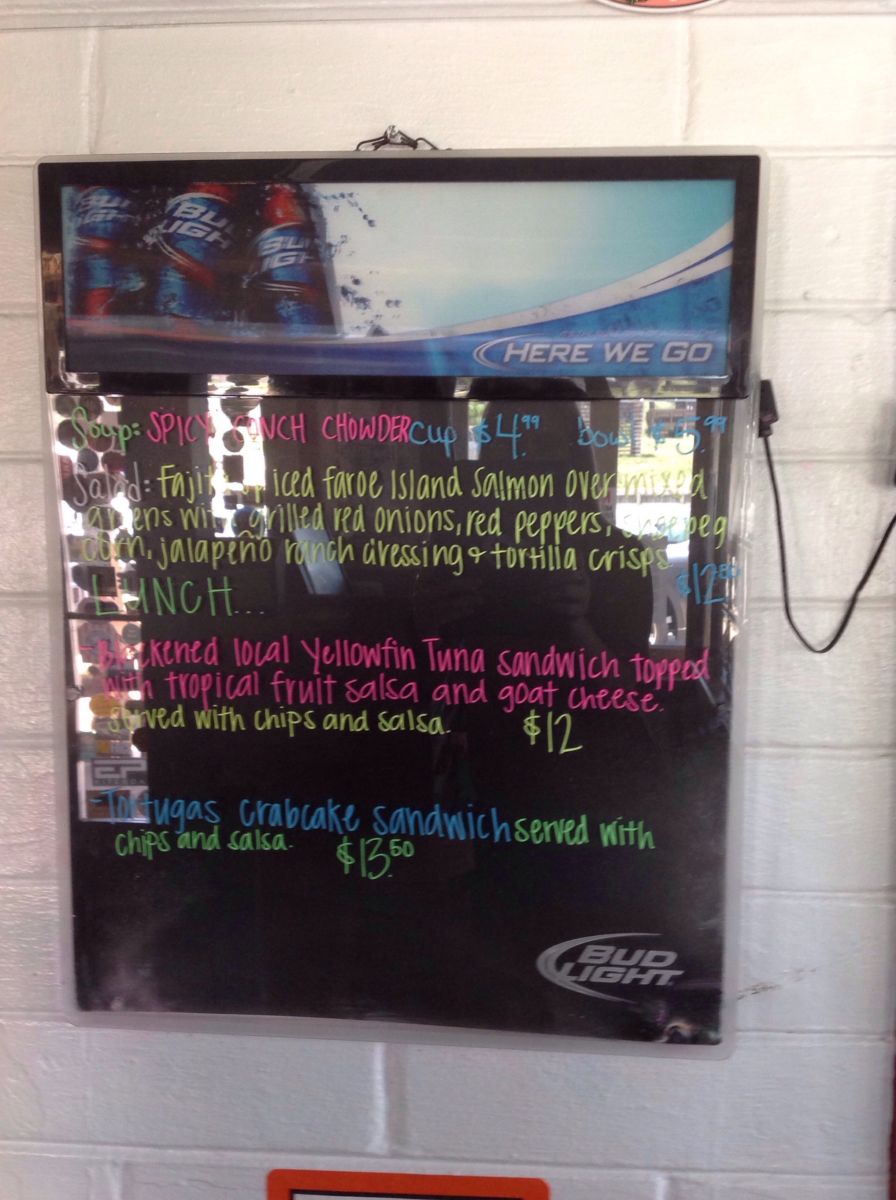 BUD LIGHT
BUD LIGHT
BUD LIGHT
HERE WE GO
Soup: SPICY CONCH CHOWDER Cup $4.99 bowl $5.99
Salad: Fajita spiced faroe Island Salmon over mixed
greens with grilled red onions, red peppers,
corn, jalapeño ranch dressing & tortilla crisps
$12
LUNCH...
- Blackened local Yellowfin Tuna sandwich topped
with tropical fruit salsa and goat cheese.
served with chips and salsa. $12
- Tortugas crabcake sandwich served with
chips and salsa. $13.50
BUD
LIGHT